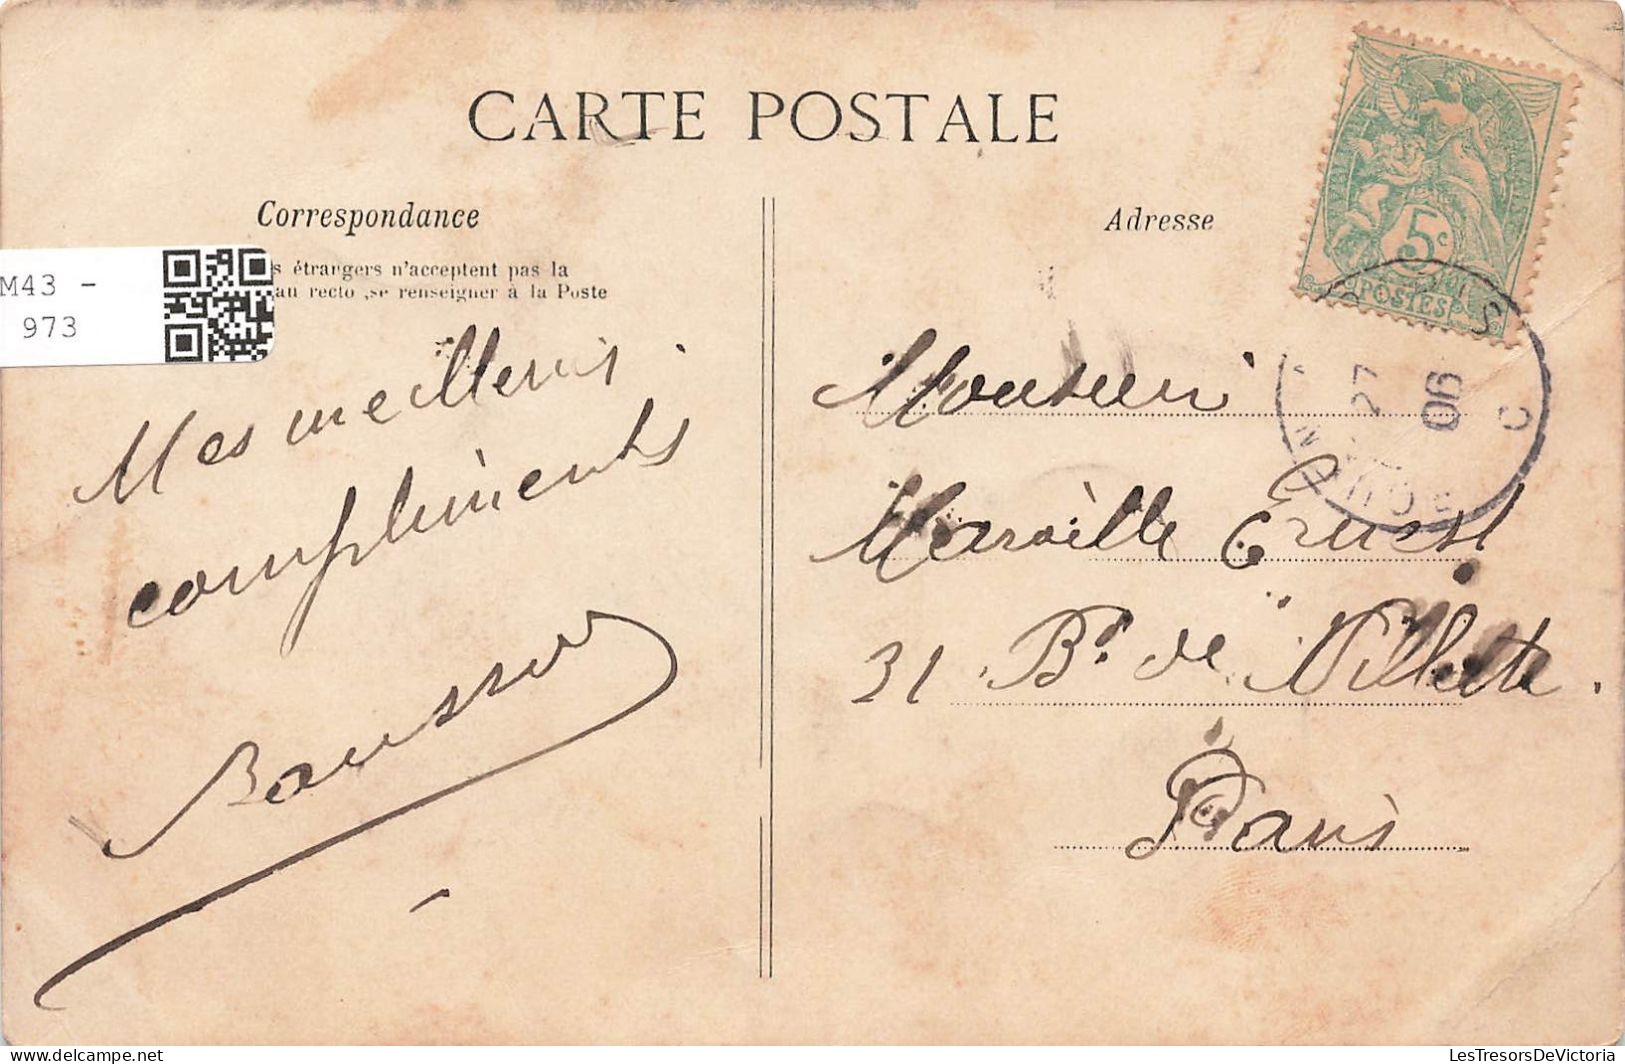 CARTE POSTALE
Correspondance
s étrangers n'acceptent pas la
au recto, se renseigner à la Poste
M43 -
973
Mes meilleurs
compliments
Adresse
5c
POSTES
27
06
Monsieur
Ernest
31 Bd de Villette.
Paris
LesTresorsDeVictoria
www.delcampe.net